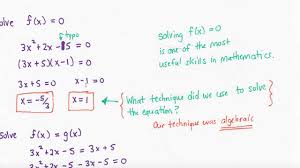 solve f(x) = 0
typo
3x² + 2x - 5 = 0
(3x+5)(x-1) = 0
3x+5 = 0 x-1 = 0
x = -5/3 x = 1
solving f(x) = 0
is one of the most
useful skills in mathematics.
What technique did we use to solve
the equation?
Our technique was algebraic
solve f(x) = g(x)
3x² + 2x - 5 = 3x + 5
- 3x - 5 = 0